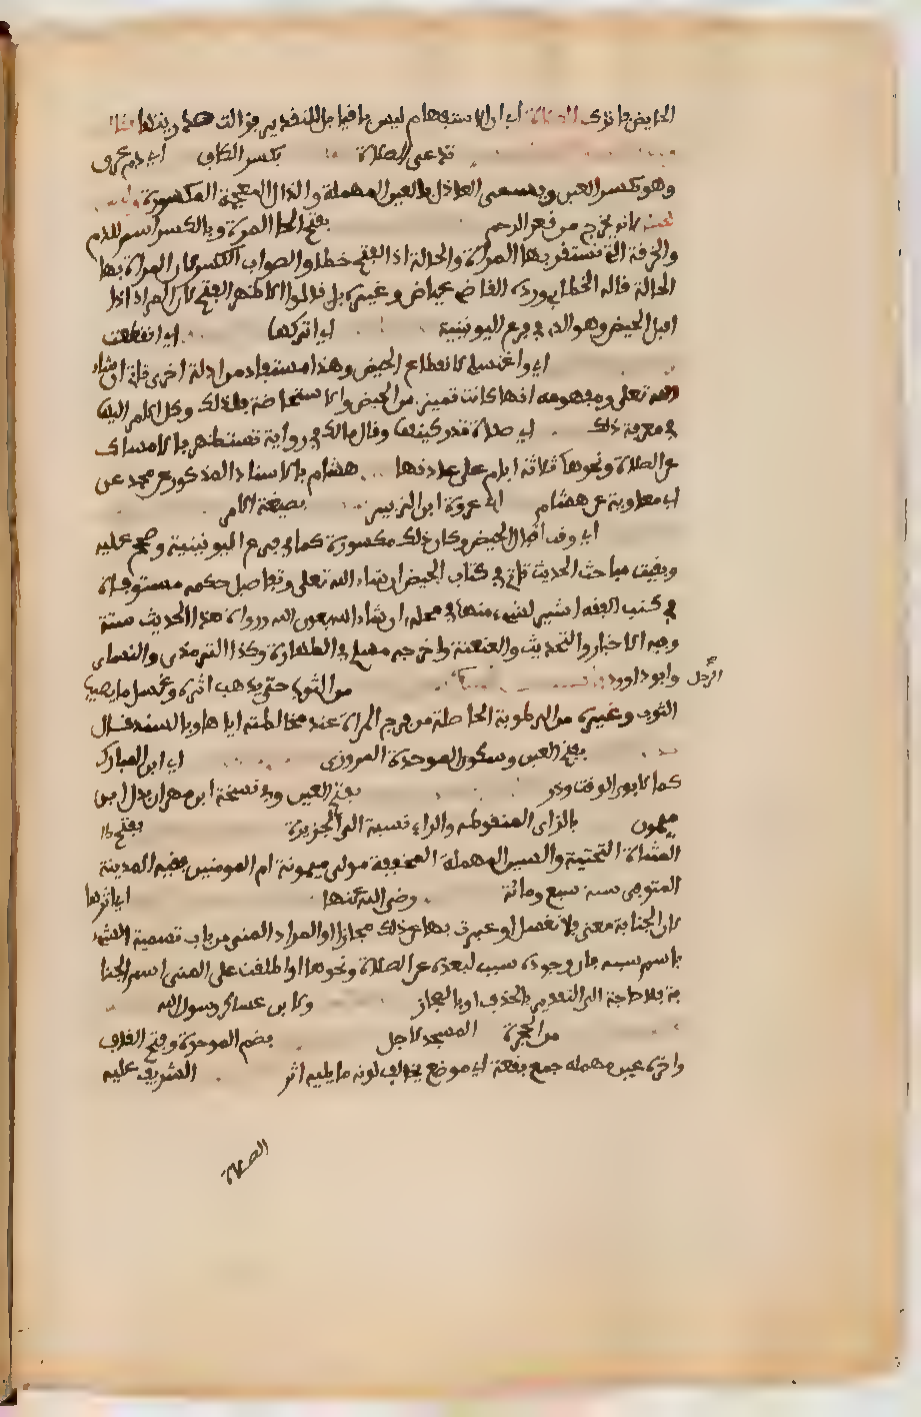 الحايض فاترك الصلاة اي ان الاستفهام ليس باقيا بل للتقدير فزالت
تدعي الصلاة بكسر الكاف اي دم عرق
وهو بكسر العين ويسمى العاذل بالعين المهملة والذال المعجمة المكسورة
لانه يخرج من قعر الرحم بفتح الحا المرة وبالكسر اسم للدم
والخرقة التي تستثفر بها المراة والحالة اذ الفتح خطا والصواب الكسر لان المراد بها
الحالة قاله الخطابي ورده القاضي عياض وغيره بل قالوا الاظهر الفتح لان المراد اذا
اقبل الحيض وهو الذي في فرع اليونينية اي اتركها اي انقطعت
اي واغتسلي لانقطاع الحيض وهذا مستفاد من ادلة اخرى تاتي ان شاء
الله تعلى ومفهومه انها كانت تميز بين الحيض والاستحاضة فلذلك وكل الامر اليها
في معرفة ذلك اي صلاة قدر كيفها وقال مالك في رواية تستظهر بالامساك
عن الصلاة ونحوها ثلاثة ايام على عادتها هشام بالاسناد المذكور عن محمد عن
ابي معاوية عن هشام اي عروة ابن الزبير بصيغة الامر
اي وقت اقبال الحيض وكان ذلك مكسورة كما في فرع اليونينية وصحح عليه
وبقيت مباحث الحديث تاتي في كتاب الحيض ان شاء الله تعلى وتفاصيل حكمه مستوفاة
في كتب الفقه اشير لشيء منها في محله ان شاء الله بعون الله ورواة هذا الحديث ستة
وفيه الاخبار والتحديث والعنعنة واخرجه مسلم في الطهارة وكذا الترمذي والنساي
وابو داوود من الثوب حتى يذهب اثره وغسل ما يصيب
الرجل
الثوب وغيره من الرطوبة الحاصلة من فرج المراة عند مخالطته اياها وبالسند قال
بفتح العين وسكون الموحدة المروزي اي ابن المبارك
كما لابوي الوقت وذر بفتح العين وفي نسخة ابن مهران بدل ابن
ميمون بالزاي المنقوطة والراء نسبة الى الجزيرة بفتح
المثناة التحتية والسين المهملة المخففة مولى ميمونة ام المومنين فقيه المدينة
المتوفى سنة سبع ومائة رضى الله عنها اي اثرها
لان الجنابة معنى فلا تغسل او عبرت بها عن ذلك مجازا او المراد المني من باب تسمية الشيء
باسم سببه فان وجوده سبب لبعده عن الصلاة ونحوها او اطلقت على المني اسم الجنا
بة فلا حاجة الى التقدير بالحذف او بالمجاز ولابن عساكر رسول الله
من الحجرة المسجد لاجل بضم الموحدة وفتح القاف
واخره عين مهملة جمع بقعة اي موضع يخالف لونه ما يليه اثر الشريف عليه
الصلاة